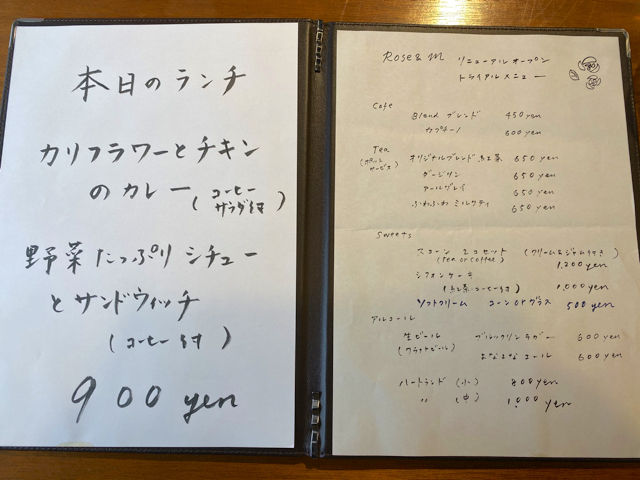 本日のランチ
カリフラワーとチキン
のカレー(コーヒー
サラダ付)
野菜たっぷりシチュー
とサンドウィッチ
(コーヒー付)
900 yen
Rose & M リニューアルオープン
トライアルメニュー
Cafe
Blend ブレンド 450 yen
カプチーノ 600 yen
Tea
(ポットサービス)
オリジナルブレンド紅茶 650 yen
ダージリン 650 yen
アールグレイ 650 yen
ふわふわ ミルクティ 650 yen
Sweets
スコーン 2コセット (クリーム&ジャム付き)
(Tea or Coffee) 1,200 yen
シフォンケーキ
(紅茶コーヒー付) 1,000 yen
ソフトクリーム コーン or グラス 500 yen
アルコール
生ビール ブルックリンラガー 600 yen
(クラフトビール) よなよなエール 600 yen
ハートランド (小) 800 yen
〃 (中) 1,000 yen